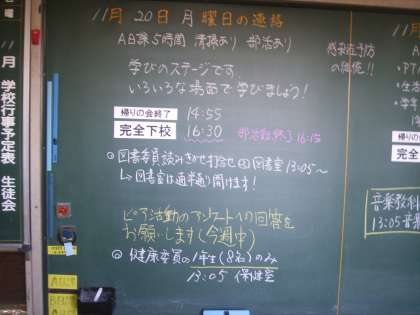 11月
学校行事予定表
生徒会
11月 20日 月曜日の連絡
AB課5時間 清掃あり 部活あり
学びのステージです
いろいろな場面で学びましょう!
帰りの会終了 14:55
完全下校 16:30 部活動終了16:15
◎図書委員読みきかせ打合せ 図書室 13:05~
↳図書室は通常通り開けます!
ピア活動のアンケートへの回答を
お願いします(今週中)
◎健康委員の1年生(8名)のみ
13:05 保健室
感染症予防
の徹底!!
・PT
・生活
・学
音楽教科
13:05 音楽